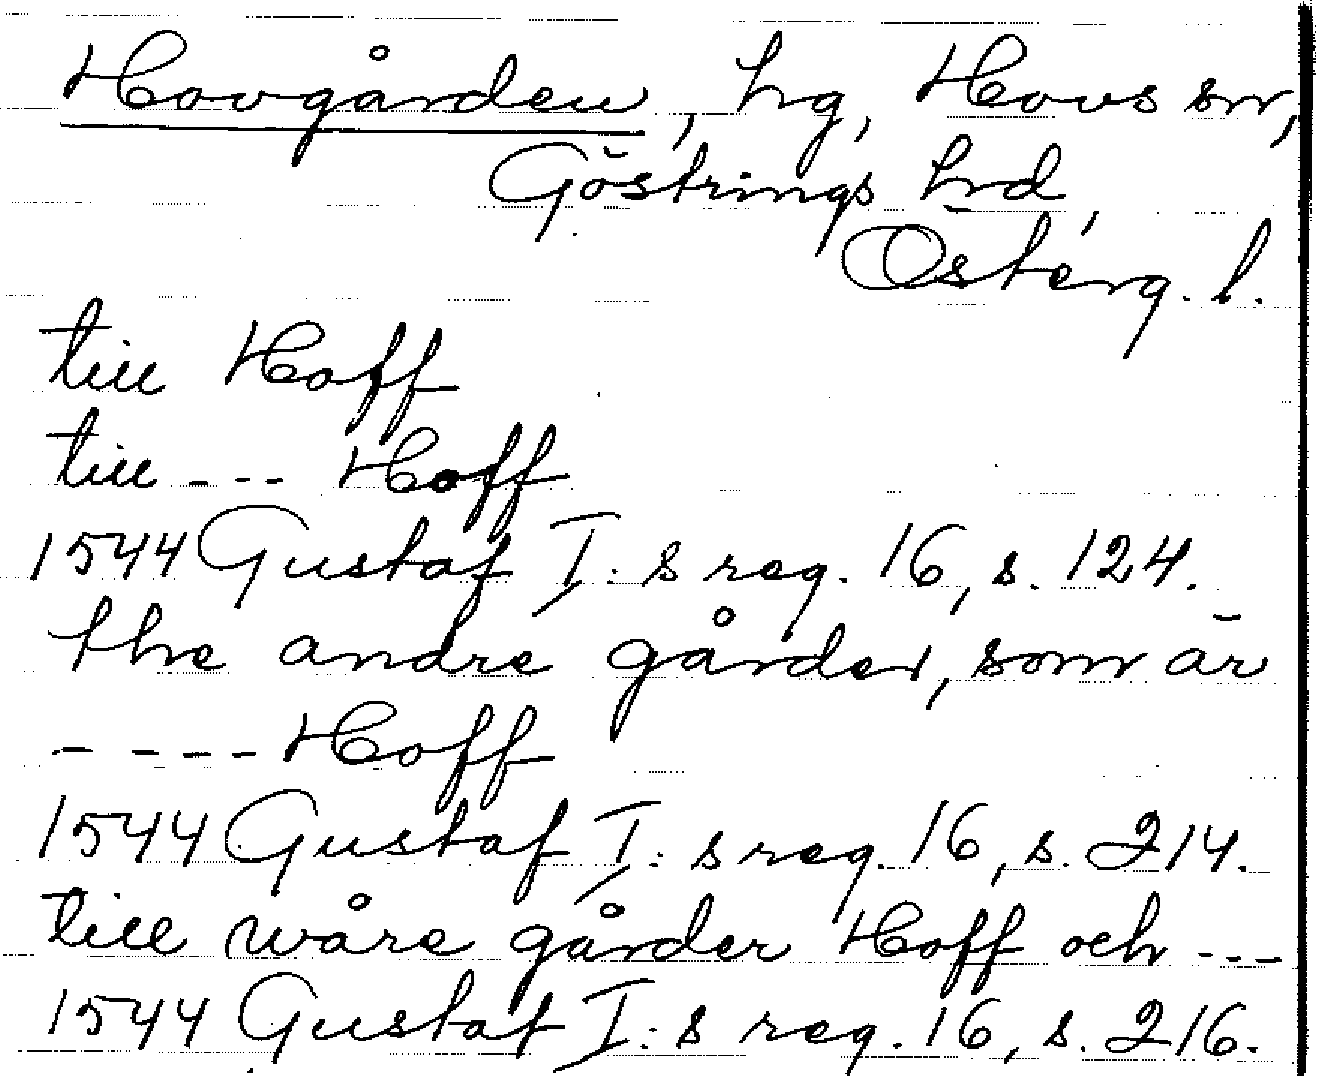 Hovgården, hg, Hovs sn,
Göstrings hd,
Österg. l.
till Hoff
till --- Hoff
1544 Gustaf I:s reg. 16, s. 124.
the andre gårder, som är
- --- Hoff
1544 Gustaf I:s reg. 16, s. 214.
till wåre gårder Hoff och ---
1544 Gustaf I:s reg. 16, s. 216.